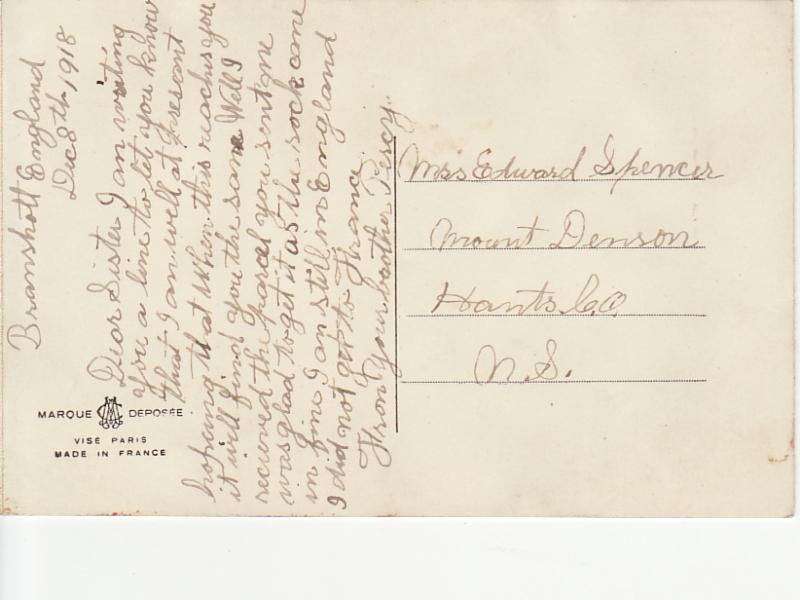 Bramshott England
Dec 8th 1918
Dear Sister I am writing
you a line to let you know
that I am well at preseant
hopeing that when this reaches you
it will find you the same Well I
recieved the parcel you sent me
was glad to get it as the sock came
in fine I am still in England
I did not get to France
From your brother Percy
Mrs Edward Spencer
Mount Denson
Hants Co.
N.S.
MARQUE DEPOSÉE
VISÉ PARIS
MADE IN FRANCE